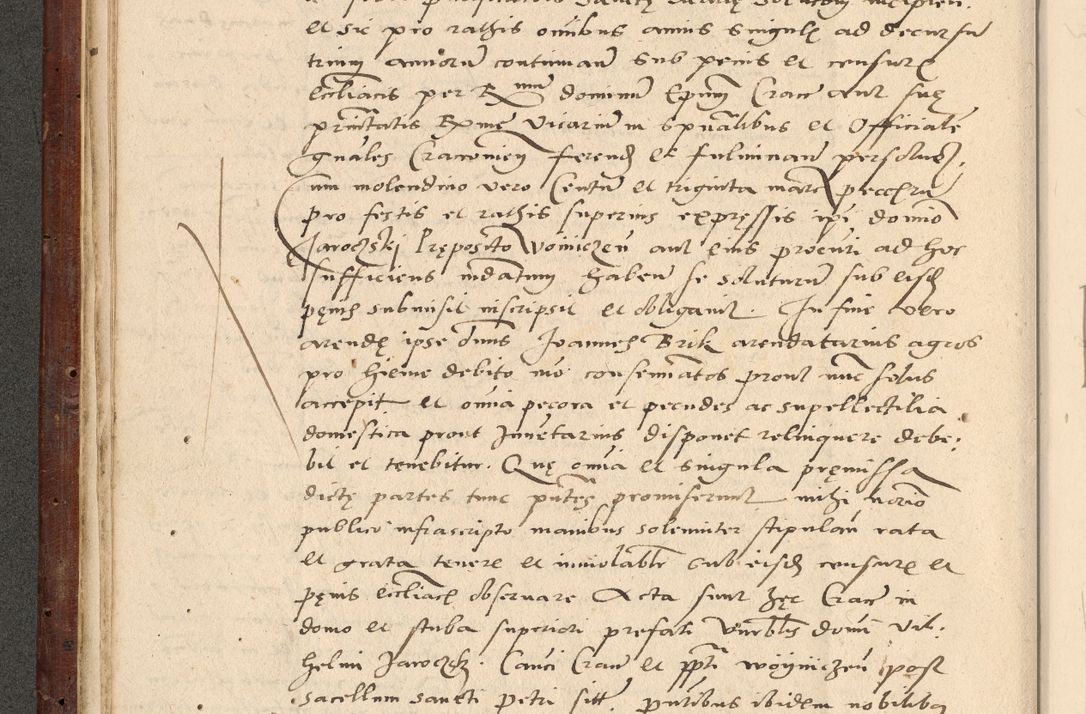 et sic pro rathis omibus annis singul ad decursu
trium annorū continuan sub penis et censure
Eccliacis per R mum dominum Epum Crac aut suę
prntatis Rmę vicarium in spualibus et Officiale
gnales Cracovien ferend et fulminan persolue.
um molendino vero Centū et triginta marc pecchru
pro festis et rathis superius expręssis ipi domīo
Jaroczski Pręposito Voiniczen aut eius procuri ad hoc
sufficiens mdatum haben se soluturū sub eisd
pęnis submisit inscripsit et obligauit. In fine vero
arendę ipse dnus Joannes Brik arendatarius agros
pro hieme debito mō conseminatos prout nunc solus
accepit et omnia pecora et pecudes ac supellectilia
domestica prout Inuetarius disponet relinquere debe.
bit et tenebitur. Quę omia et singula pręmissa
dictę partes tunc pntes promiserunt mihi notrio
publico infrascripto manibus solemniter stipulan rata
et grata tenere et inviolabilr sub eisd censure et
pęnis eccliac obseruare Acta sunt hęc Crac in
domo et stuba superiori prefati Vnerblis domi Vil.
helmi Jaroczski. Canci Crac et ppti woyniczen post
sacellum sancti petri sitt. pntibus ibidem nobilibq